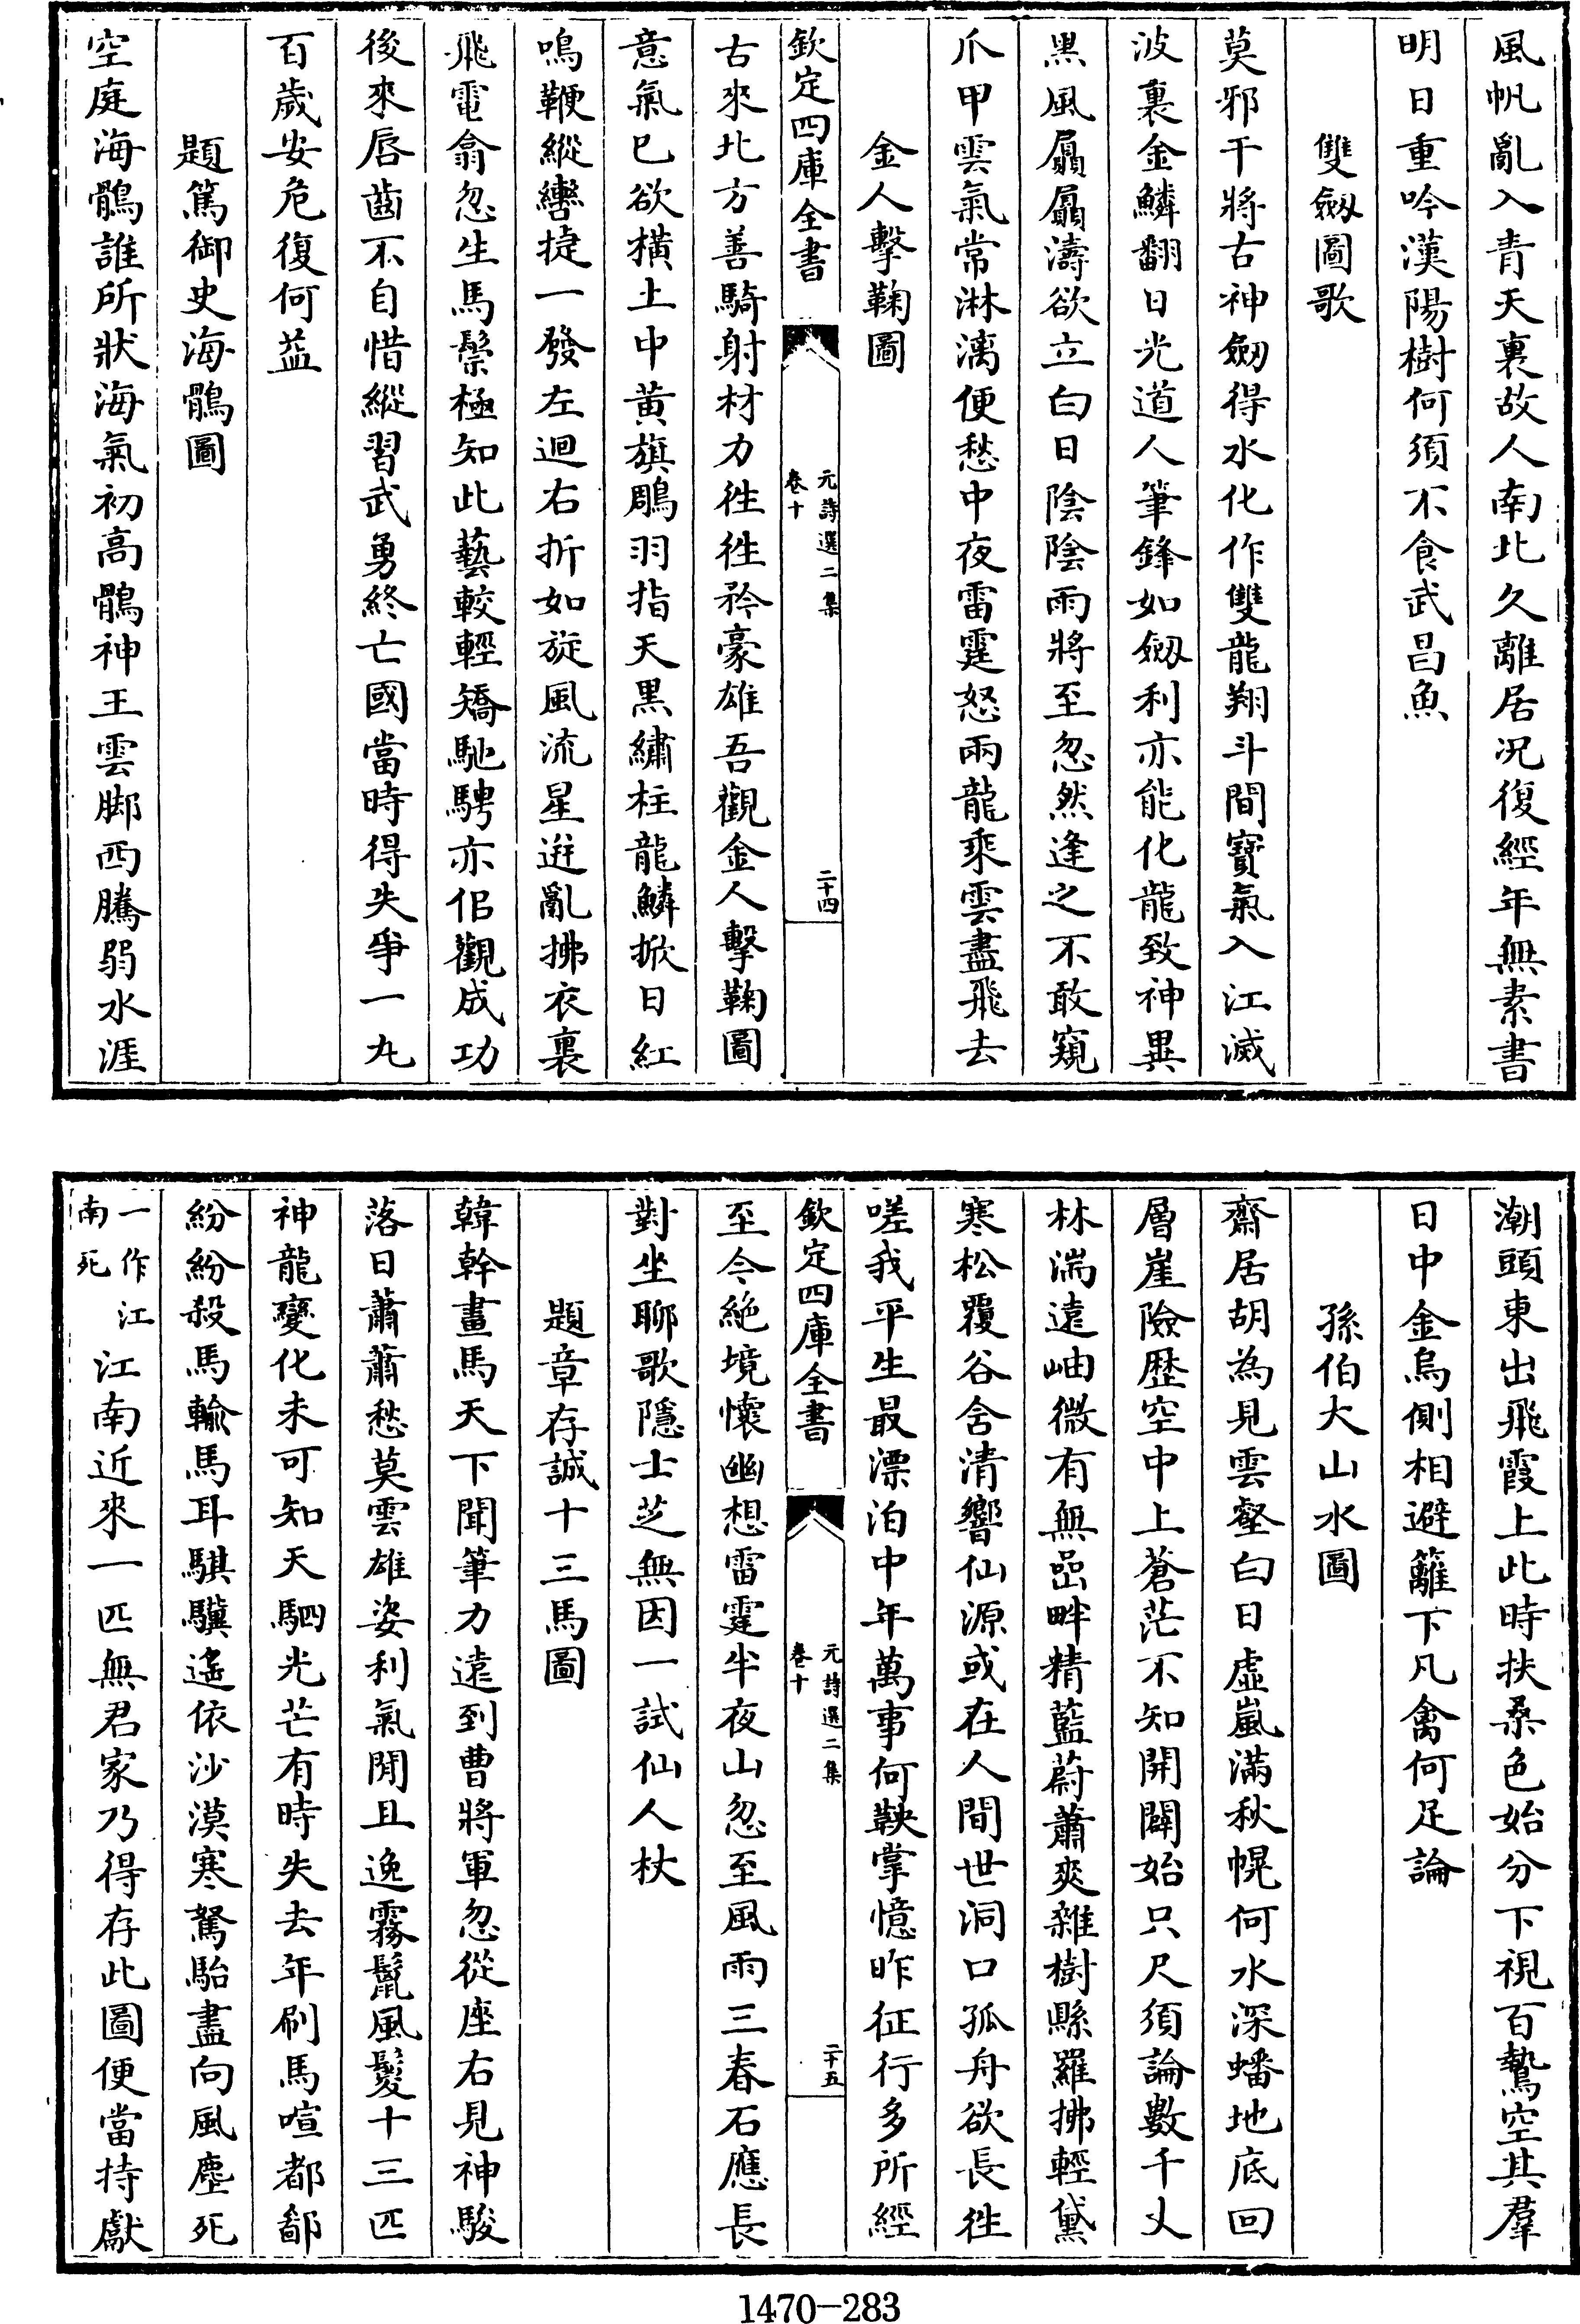 風帆亂入青天裏故人南北久離居况復經年無素書
明日重吟漢陽樹何須不食武昌魚
雙劔圖歌
莫邪干將古神劔得水化作雙龍翔斗間寶氣入江滅
波裏金鱗翻日光道人筆鋒如劔利亦能化龍致神異
黒風贔贔濤欲立白日陰陰雨將至忽然逢之不敢窺
爪甲雲氣常淋漓便愁中夜雷霆怒兩龍乘雲盡飛去
金人擊鞠圖
欽定四庫全書
元詩選二集
卷十
二十四
古來北方善騎射材力徃徃矜豪雄吾觀金人擊鞠圖
意氣已欲横土中黄旗鵰羽指天黒繡柱龍鱗掀日紅
鳴鞭縱轡捷一發左迴右折如旋風流星迸亂拂衣裏
飛電翕忽生馬騣極知此藝較輕矯馳騁亦佀觀成功
後來唇齒不自惜縱習武勇終亡國當時得失爭一丸
百歲安危復何益
題篤御史海鶻圖
空庭海鶻誰所狀海氣初高鶻神王雲脚西騰弱水涯
潮頭東出飛霞上此時扶桑色始分下視百鷙空其羣
日中金烏側相避籬下凡禽何足論
孫伯大山水圖
齋居胡為見雲壑白日虛嵐滿秋幌何水深蟠地底回
層崖險歴空中上蒼茫不知開闢始只尺須論數千丈
林湍遠岫微有無嵒畔精藍蔚蕭爽雜樹縣羅拂輕黛
寒松覆谷含清響仙源或在人間世洞口孤舟欲長徃
嗟我平生最漂泊中年萬事何鞅掌憶昨征行多所經
欽定四庫全書
元詩選二集
卷十
二十五
至今絶境懷幽想雷霆半夜山忽至風雨三春石應長
對坐聊歌隱士芝無因一試仙人杖
題章存誠十三馬圖
韓幹畫馬天下聞筆力遠到曹將軍忽從座右見神駿
落日蕭蕭愁莫雲雄姿利氣閒且逸霧鬣風鬉十三匹
神龍變化未可知天駟光芒有時失去年刷馬喧都鄙
紛紛殺馬輸馬耳騏驥遙依沙漠寒駑駘盡向風塵死
一作江
南死
江南近來一匹無君家乃得存此圖便當持獻
1470-283